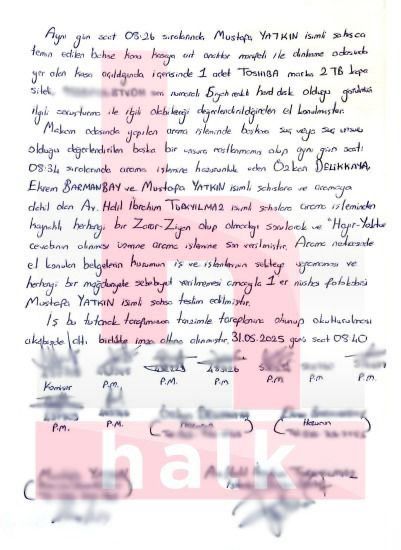 Aynı gün saat 08:26 sıralarında Mustafa YATKIN isimli şahısca
temin edilen bahse konu kasaya ait anahtar marifeti ile dinlenme odasında
yer alan kasa açıldığında içerisinde 1 adet TOSHIBA marka 2 TB kapa
siteli seri numaralı harddisk olduğu görülmüş
ilgili soruşturma ile ilgili olabileceği değerlendirildiğinden el konulmuştur.
Makam odasında yapılan arama işleminde başkaca suç veya suç unsuru
olduğu değerlendirilen başka bir unsura rastlanmamış olup aynı gün saat
08:34 sıralarında arama işlemine hazırunluk eden Özkan DELİKKAYA,
Ekrem BARMANBAY ve Mustafa YATKIN isimli şahıslara ve aramaya
dahil olan Av. Halil İbrahim TUAYILMAZ isimli şahıslara arama işleminden
kaynaklı herhangi bir Zarar-Ziyan olup olmadığı sorularak ve "Hayır-Yoktur"
cevabının alınması üzerine arama işlemine son verilmiştir. Arama neticesinde
el konulan belgelerin kurumun iş ve işlemlerinin sekteye uğramaması ve
herhangi bir mağduriyete sebebiyet verilmemesi amacıyla 1 er nüsha fotokobisi
Mustafa YATKIN isimli şahsa teslim edilmiştir.
İş bu tutanak tarafımızca tanzimle taraflarına okunup okutturulması
akabinde altı birlikte imza altına alınmıştır. 31.05.2025 günü saat 08:40
Komiser P.M. P.M. P.M. P.M. P.M.
P.M. P.M. Hazurun Hazurun
h
halk